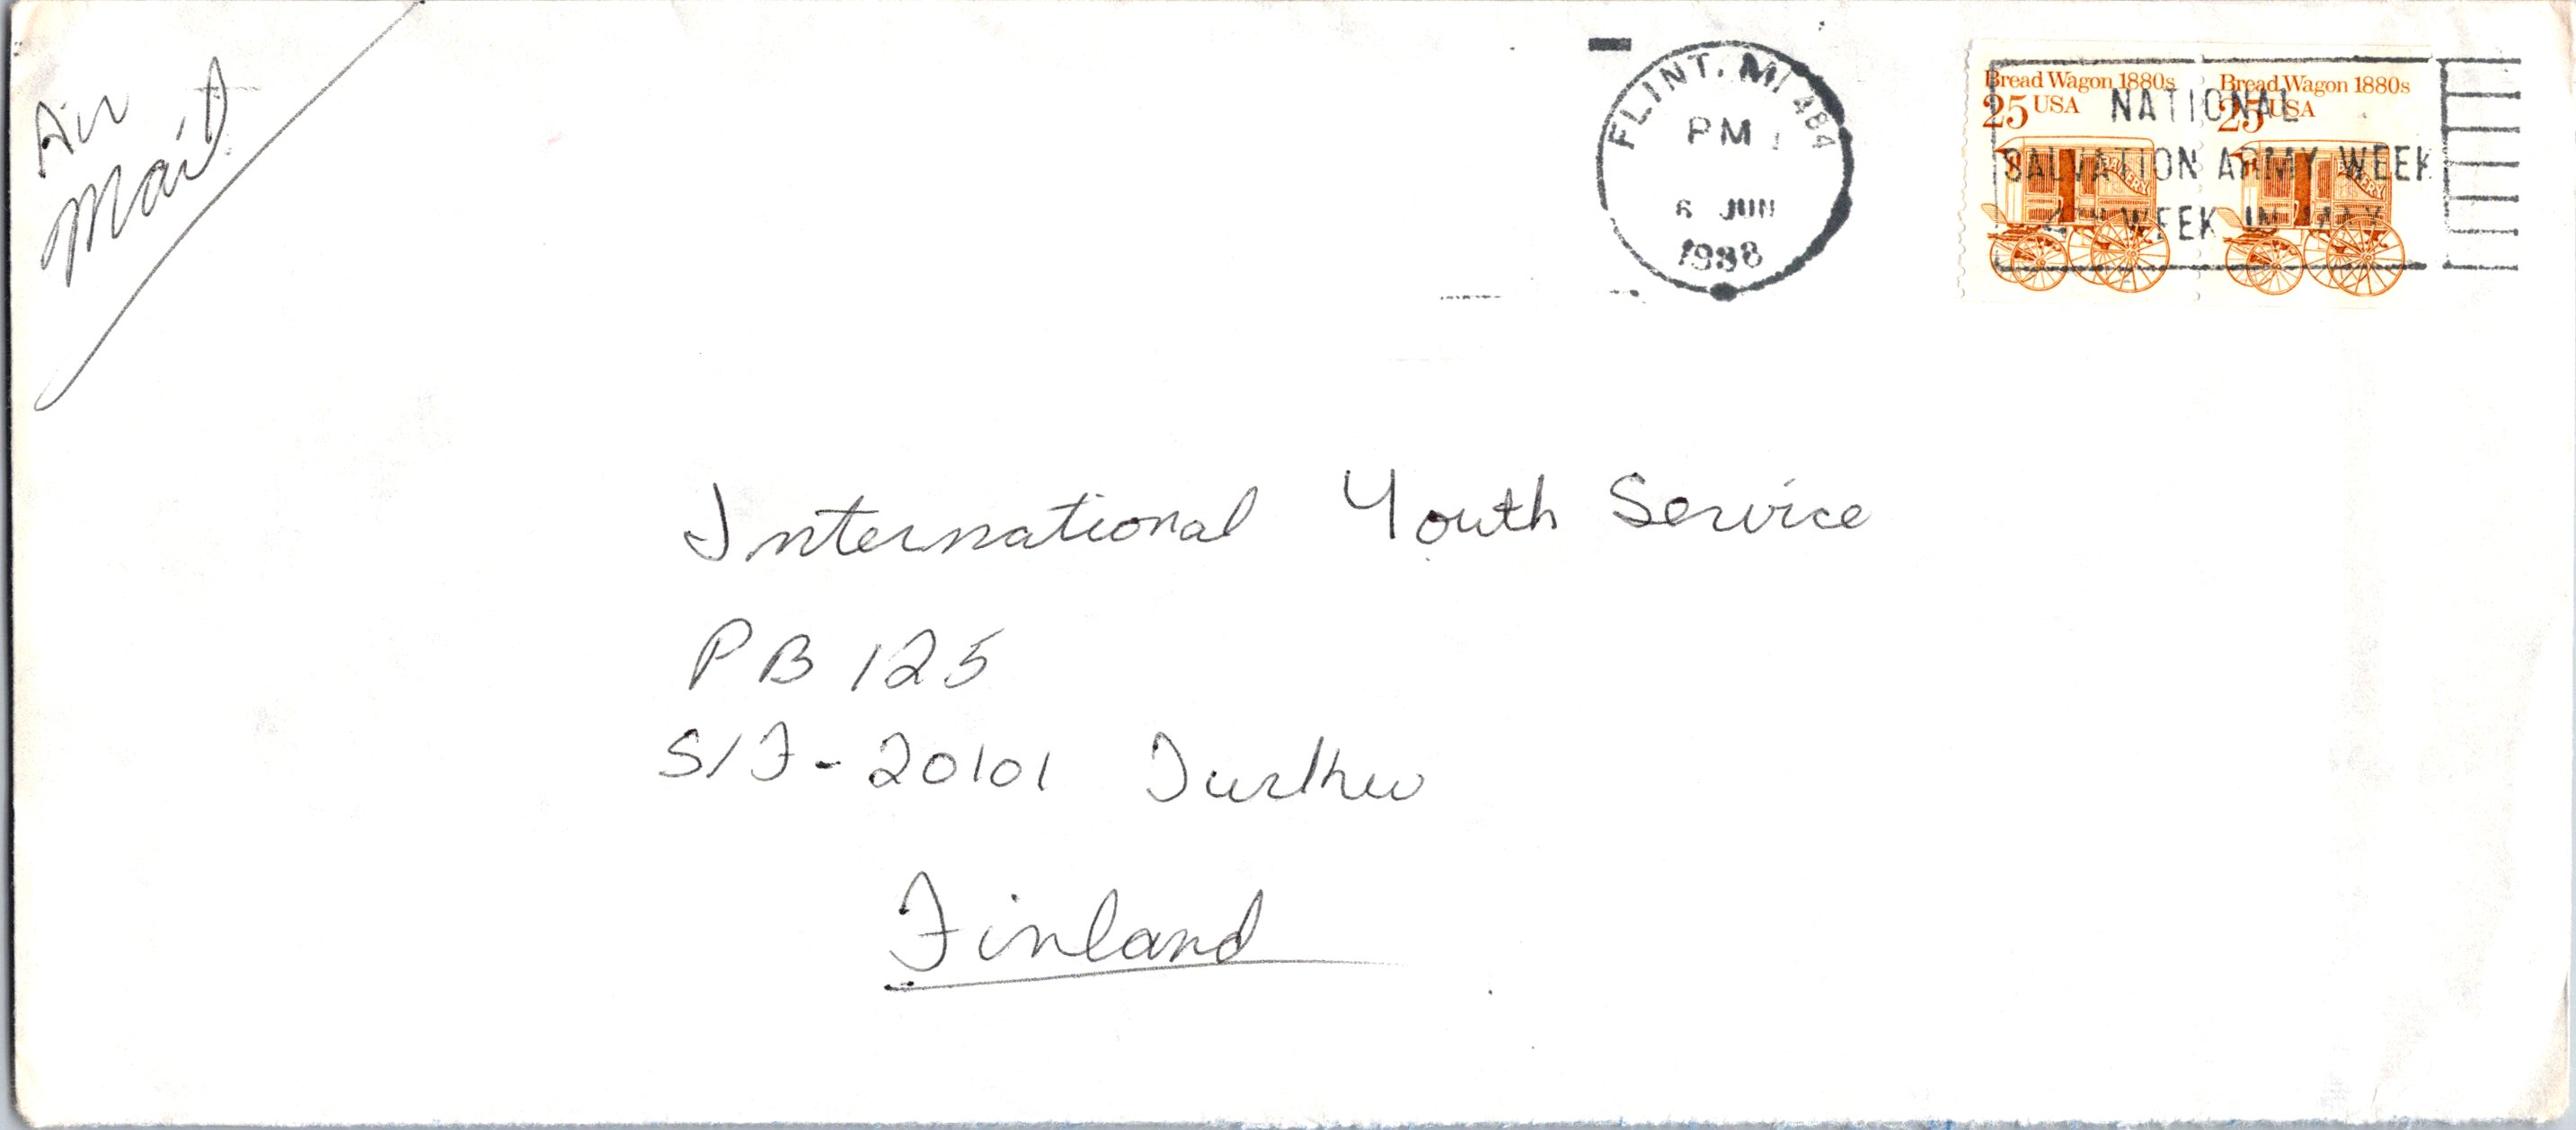 Air
Mail
FLINT, MI 484
PM
6 JUN
1988
Bread Wagon 1880s
25 USA
Bread Wagon 1880s
25 USA
BAKERY
BAKERY
NATIONAL
SALVATION ARMY WEEK
WEEK IN MAY
International Youth Service
PB 125
S/F-20101 Turku
Finland